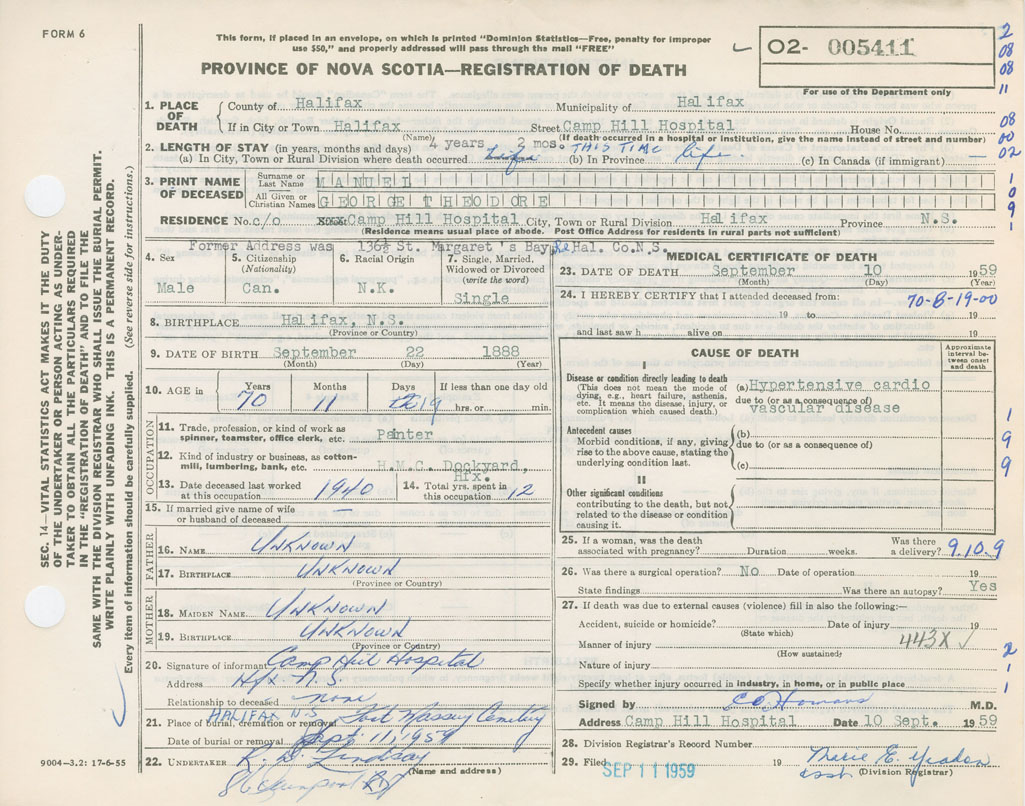 FORM 6
This form, if placed in an envelope, on which is printed "Dominion Statistics—Free, penalty for improper
use $50," and properly addressed will pass through the mail "FREE"
PROVINCE OF NOVA SCOTIA—REGISTRATION OF DEATH
02- 005411
For use of the Department only
2
08
08
11
08
00
02
1
0
9
1
1
9
9
2
1
SEC. 14—VITAL STATISTICS ACT MAKES IT THE DUTY
OF THE UNDERTAKER OR PERSON ACTING AS UNDER-
TAKER TO OBTAIN ALL THE PARTICULARS REQUIRED
IN THE "REGISTRATION OF DEATH" AND TO FILE THE
SAME WITH THE DIVISION REGISTRAR WHO SHALL ISSUE THE BURIAL PERMIT.
WRITE PLAINLY WITH UNFADING INK. THIS IS A PERMANENT RECORD.
Every item of information should be carefully supplied. (See reverse side for instructions.)
1. PLACE OF DEATH
County of Halifax Municipality of Halifax
If in City or Town Halifax Street Camp Hill Hospital House No.
(Name) (If death occurred in a hospital or institution, give the name instead of street and number)
2. LENGTH OF STAY (in years, months and days) 4 years 3 mos. THIS TIME
(a) In City, Town or Rural Division where death occurred Life (b) In Province life (c) In Canada (if immigrant) —
3. PRINT NAME OF DECEASED
Surname or Last Name MANUEL
All Given or Christian Names GEORGE THEDORE
RESIDENCE No. c/o Street Camp Hill Hospital City, Town or Rural Division Halifax Province N.S.
(Residence means usual place of abode. Post Office Address for residents in rural parts not sufficient)
Former Address was 136½ St. Margaret's Bay Rd Hal. Co.N.S.
4. Sex
Male
5. Citizenship
(Nationality)
Can.
6. Racial Origin
N.K.
7. Single, Married,
Widowed or Divorced
(write the word)
Single
8. BIRTHPLACE Halifax, N.S.
(Province or Country)
9. DATE OF BIRTH September 22 1888
(Month) (Day) (Year)
10. AGE in
Years Months Days If less than one day old
70 11 19 hrs. or min.
OCCUPATION
11. Trade, profession, or kind of work as
spinner, teamster, office clerk, etc. Panter
12. Kind of industry or business, as cotton-
mill, lumbering, bank, etc. H.M.C. Dockyard,
Hfx.
13. Date deceased last worked
at this occupation 1940
14. Total yrs. spent in
this occupation 12
15. If married give name of wife
or husband of deceased —
FATHER
16. NAME UNKNOWN
17. BIRTHPLACE UNKNOWN
(Province or Country)
MOTHER
18. MAIDEN NAME UNKNOWN
19. BIRTHPLACE UNKNOWN
(Province or Country)
20. Signature of informant Camp Hill Hospital
Address Hfx N.S.
Relationship to deceased none
21. Place of burial, cremation or removal HALIFAX N-S Fort Massey Cemetery
Date of burial or removal Sept. 11, 1959
22. UNDERTAKER Lindsay
(Name and address)
9004-3.2: 17-6-55
MEDICAL CERTIFICATE OF DEATH
23. DATE OF DEATH September 10 1959
(Month) (Day) (Year)
24. I HEREBY CERTIFY that I attended deceased from: 70-8-19-00
19 to 19
and last saw h alive on 19
CAUSE OF DEATH
Approximate
interval be-
tween onset
and death
I
Disease or condition directly leading to death
(This does not mean the mode of
dying, e.g., heart failure, asthenia,
etc. It means the disease, injury, or
complication which caused death.)
(a) Hypertensive cardio
due to (or as a consequence of)
vascular disease
Antecedent causes
Morbid conditions, if any, giving
rise to the above cause, stating the
underlying condition last.
(b)
due to (or as a consequence of)
(c)
II
Other significant conditions
contributing to the death, but not
related to the disease or condition
causing it.
25. If a woman, was the death
associated with pregnancy? Duration weeks. Was there
a delivery? 9.10.9
26. Was there a surgical operation? No Date of operation 19
State findings Was there an autopsy? Yes
27. If death was due to external causes (violence) fill in also the following:—
Accident, suicide or homicide? Date of injury 19
(State which)
Manner of injury 443X
(How sustained)
Nature of injury
Specify whether injury occurred in industry, in home, or in public place
Signed by M.D.
Address Camp Hill Hospital Date 10 Sept. 1959
28. Division Registrar's Record Number
29. Filed SEP 11 1959 19 Marie E.
(Division Registrar)